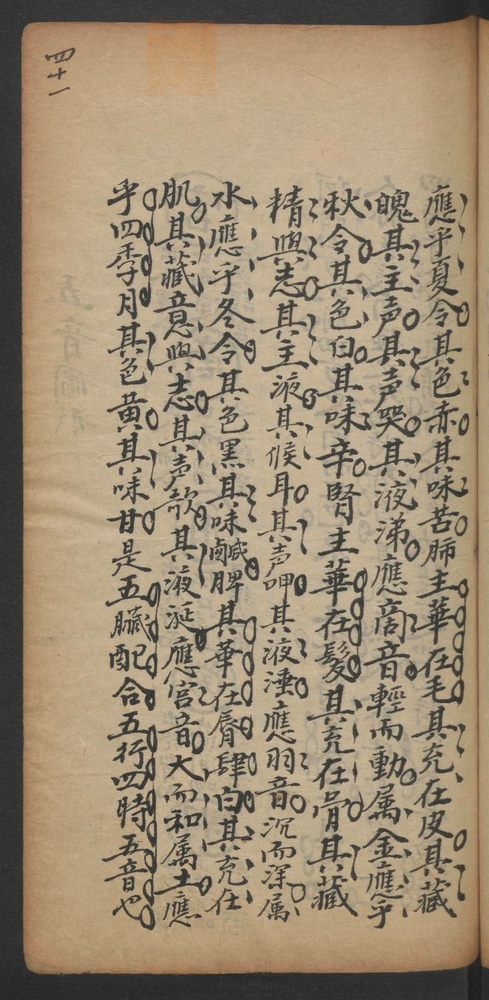 應乎夏令其色赤其味苦肺主華在毛其充在皮其藏
魄其主声其声哭其液涕應商音輕而動属金應乎
秋令其色白其味辛腎主華在髮其充在骨其藏
精與志其主液其候耳其声呻其液唾應羽音沉而深属
水應乎冬令其色黑其味鹹脾其華在脣肆白其充在
肌其藏意與志其声歌其液涎應宮音大而和属土應
乎四季月其色黃其味甘是五臟配合五行四時五音也
四十一